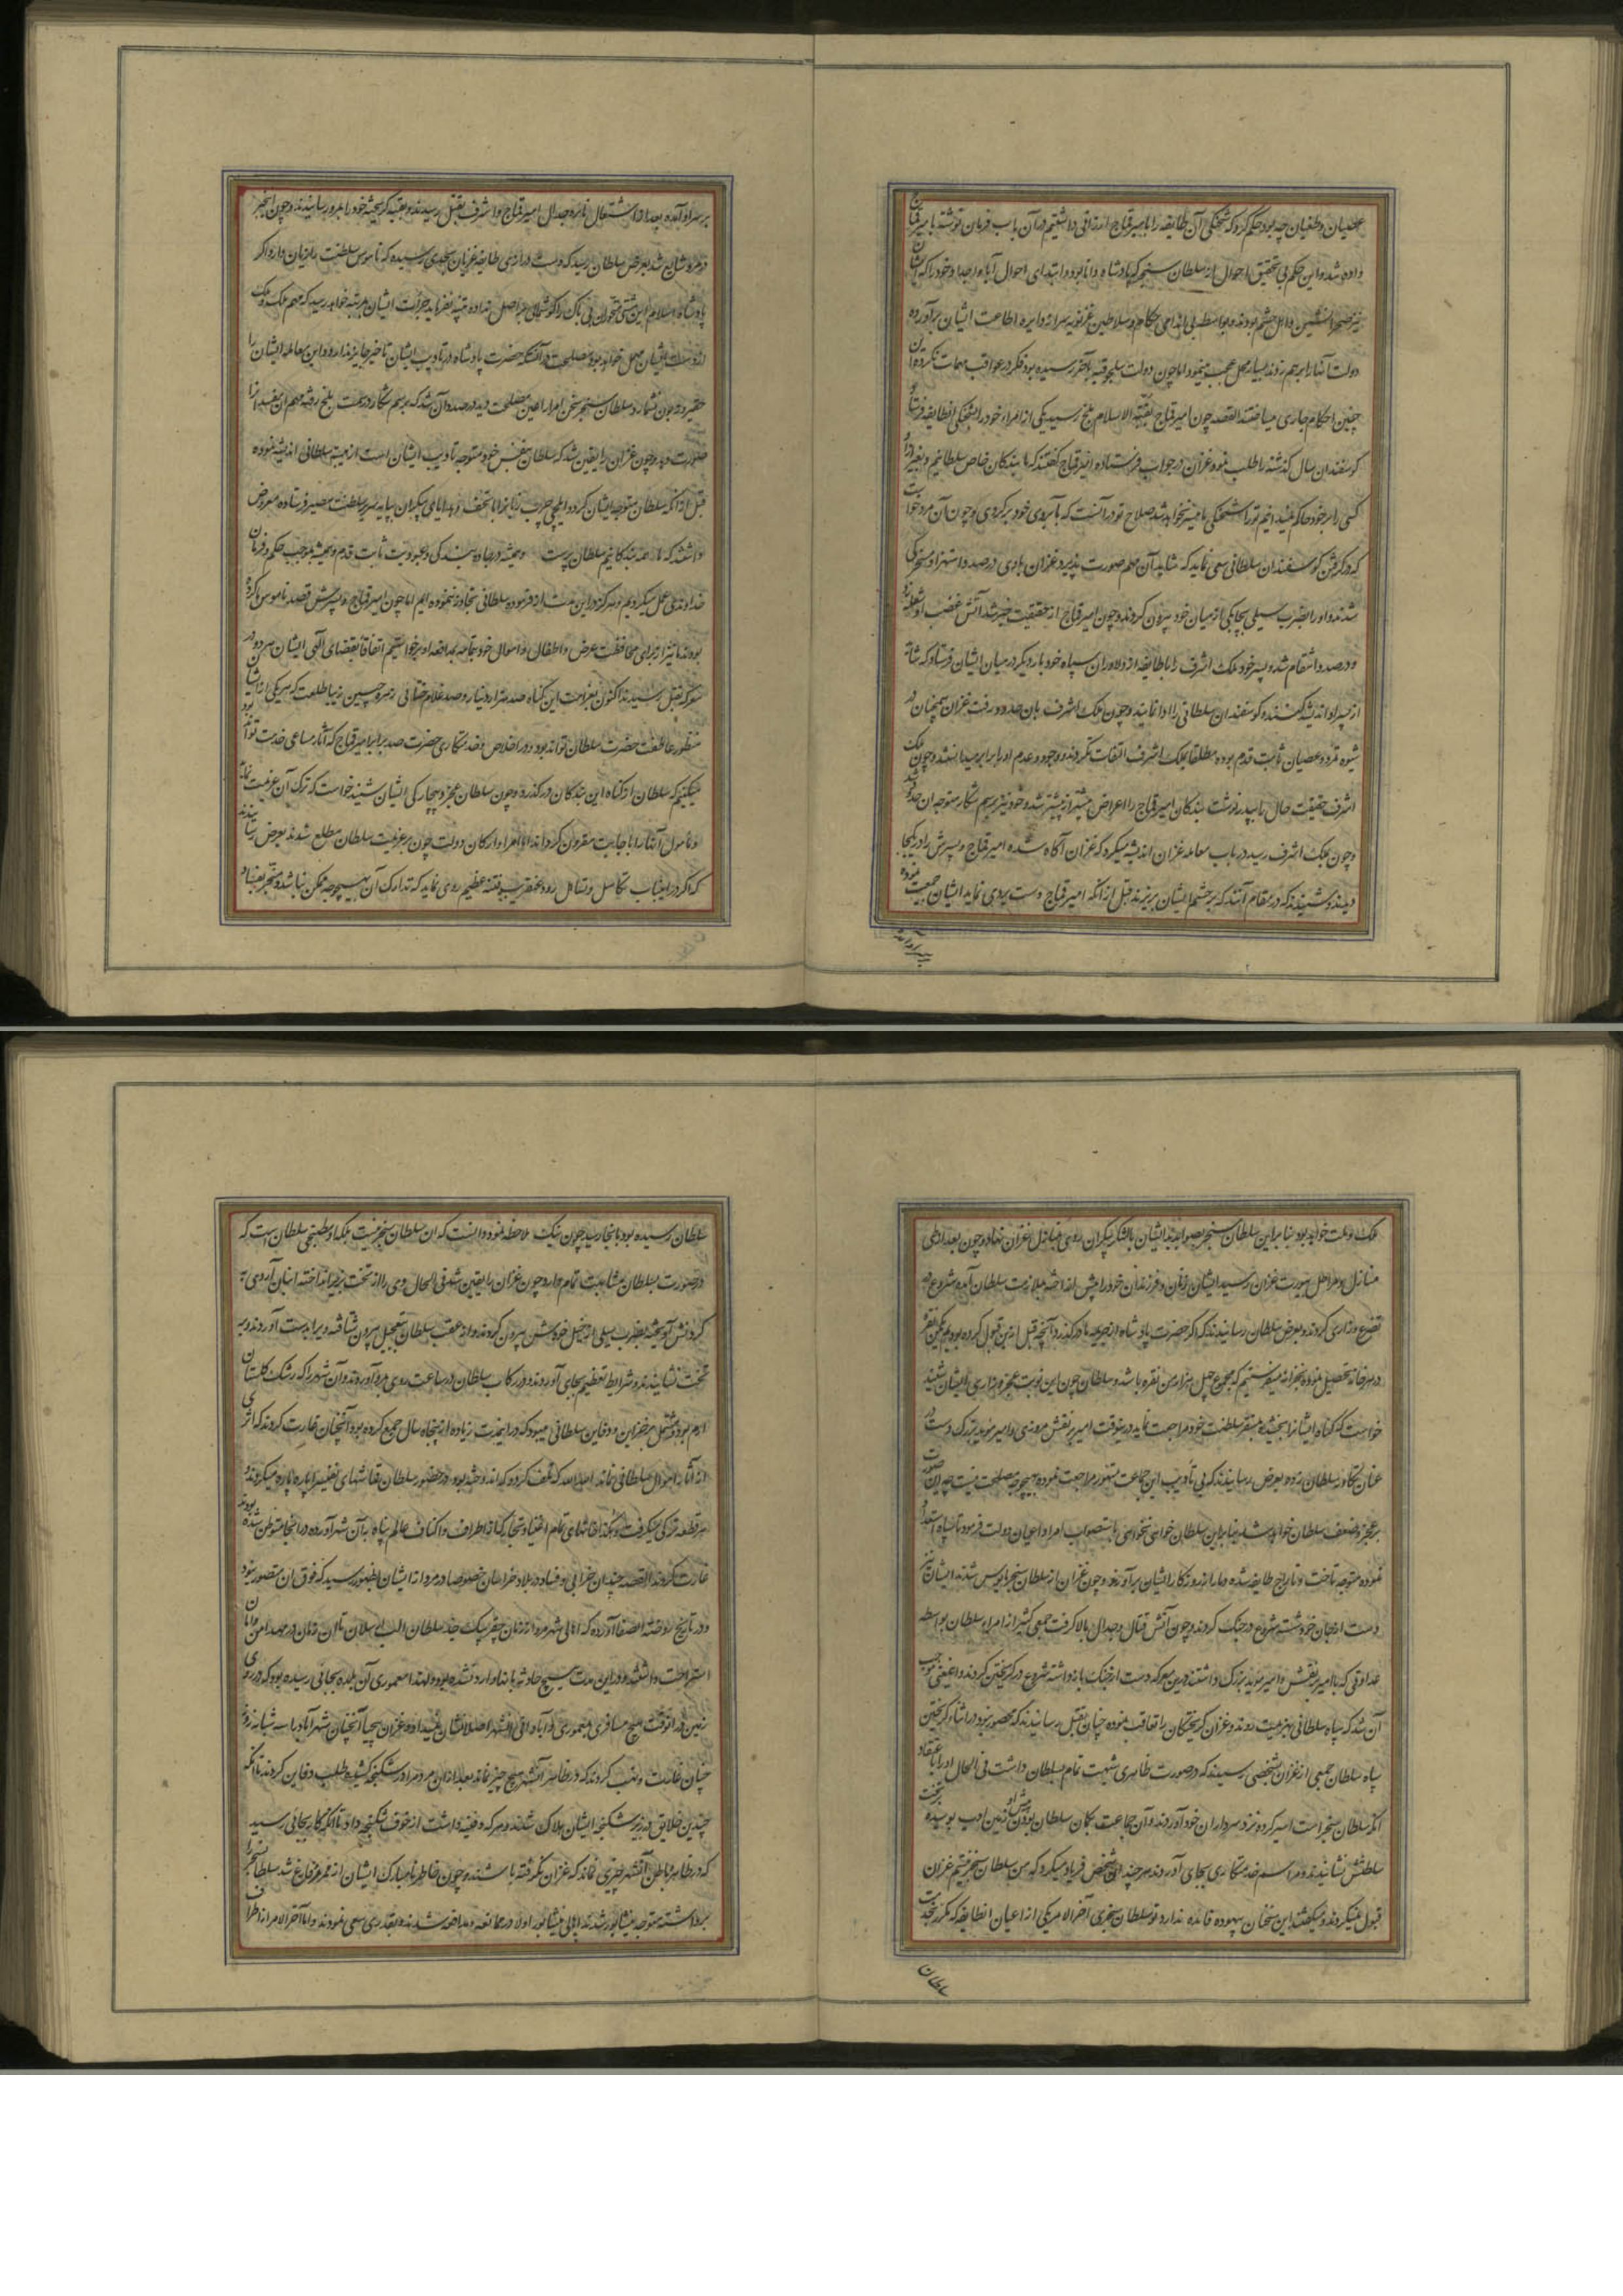 عصیان و طغیان چه بود حکم کرد که شحنگی آن طایفه را بامیر قماج ارزانی داشتیم و در آن باب فرمان نوشته بامیر قماج
داده شد و این حکم بی تحقیق احوال از سلطان سنجر که پادشاه دانا بود و ابتدای احوال آبا و اجداد خود را که ایشان
نیز صحرانشین و اهل حشم بودند و بواسطه بی اندامی حکام و سلاطین غزنویه سر از دایره اطاعت ایشان برآورده
دولت آنها را بر هم زدند بسیار محل عجب مینمود اما چون دولت سلجوقیه بآخر رسیده بود فکر در عواقب مهمات نکرده
چنین احکام جاری میساختند القصه چون امیر قماج بقبة الاسلام بلخ رسید یکی از امراء خود را بشحنگی آنطایفه فرستاد
گوسفندان سال گذشته را طلب نمود غزان در جواب فرستاده امیر قماج گفتند که ما بندگان خاص سلطانیم و بغیر از او
کسی را بر خود حاکم نمیدانیم تو را شحنگی ما میسر نخواهد شد صلاح تو در آنست که بآبروی خود برگردی و چون آن مرد خواست
که در گرفتن گوسفندان سلطانی سعی نماید که شاید آن مهم صورت پذیرد غزان باوی در صدد استهزاء و سخرگی
شدند و او را بضرب سیلی بچابکی از میان خود بیرون کردند و چون امیر قماج از حقیقت خبر شد آتش غضب او شعله زد
و در صدد انتقام شد و پسر خود ملک اشرف را با طایفه از دلاوران سپاه خود بار دیگر در میان ایشان فرستاد که شاید
از پسر او اندیشه کنند گوسفندان سلطانی را ادا نمایند و چون ملک اشرف بان حدود رفت غزان همچنان در
شیوه تمرد و عصیان ثابت قدم بوده مطلقا بملک اشرف التفات نکردند و وجود و عدم او را برابر میدانستند و چون ملک
اشرف حقیقت حال را بپدر نوشت بندگان امیر قماج را اعراض بیشتر از پیشتر شد و خود نیز برسم شکار متوجه ان حدود شد
و چون بملک اشرف رسید در باب معامله غزان اندیشه میکرد که غزان آگاه شده امیر قماج و پسرش را در یکجا
دیدند و شنیدند که در مقام آنند که بر حشم ایشان بریزند قبل از آنکه امیر قماج دست بردی نماید ایشان جمعیت نموده
بر سر او آمده
بر سر او آمده بعد از اشتعال نایره جدال امیر قماج و اشرف بقتل رسیدند و بقیه گریخته خود را بمرو رسانیدند و چون این خبر
در مرو شایع شد بعرض سلطان رسید که دست درازی طایفه غزان بحدی رسیده که ناموس سلطنت را زیان دارد اگر
پادشاه اسلام این مشتی متهوران بی باک را گوشمالی بر اصل نداده تنبیه نفرماید جرأت ایشان بمرتبه خواهد رسید که مهم ملک و ملت
از دست ایشان مهمل خواهد بود مصلحت در آنستکه حضرت پادشاه در تأدیب ایشان تأخیر جایز ندارد و این معامله ایشان را
حقیر و زبون نشمارد سلطان سنجر سخن امرا را عین مصلحت دید در صدد آن شد که برسم شکار در سمت بلخ رفته مهم آن مفسدانرا
صورت دهد و چون غزان را یقین شد که سلطان بنفس خود متوجه تأدیب ایشان است از هیبت سلطانی اندیشه نموده
قبل از آنکه سلطان متوجه ایشان گردد ایلچی چرب زبانرا با تحف و هدایای بیکران بپایه سریر سلطنت مصیر فرستاده معروض
داشتند که ما همه بندگانیم سلطان پرست و همیشه در جاده بندگی و عبودیت ثابت قدم و همیشه بموجب حکم و فرمان
خداوندی عمل میکردیم و هرگز در این مدت از فرموده سلطانی تجاوز ننموده ایم اما چون امیر قماج و پسرش قصد ناموس ما کرده
بودند ما نیز از برای محافظت عرض و اطفال و اموال خود بتمامه بمدافعه او برخواستیم اتفاقا بقضای الهی ایشان هر دو در
معرکه بقتل رسیدند اکنون بغرامت این گناه صد هزار دینار و صد غلام ختائی زهره جبین زیبا طلعت که هر یکی از ایشان
منظور عاطفت حضرت سلطان تواند بود و در اخلاص و خدمتکاری حضرت صد برابر امیر قماج که آثار مساعی خدمت تواند بود
میکنیم که سلطان از گناه این بندگان درگذرد و چون سلطان عجز و بیچارگی ایشان شنید خواست که ترک آن عزیمت نماید
و مأمول آنها را باجابت مقرون گرداند اما امراء و ارکان دولت چون بر عزیمت سلطان مطلع شدند بعرض رسانیدند
که اگر در اینباب تکاسل و تغافل رود عنقریب فتنه عظیم روی نماید که تدارک آن بهیچوجه ممکن نباشد و منجر بفساد
ملک و ملت خواهد بود بنا بر این سلطان سنجر بصوابدید ایشان با لشکر بیکران روی بمنازل غزان نهاد و چون بعد از طی
منازل و مراحل بیورت غزان رسید ایشان زنان و فرزندان خود را پیش انداخته بملازمت سلطان آمده شروع در
تضرع و زاری کردند و بعرض سلطان رسانیدند که اگر حضرت پادشاه از جریمه ما درگذرد آنچه قبل ازین قبول کرده بودیم یکمن نقره
در هر خانه تحصیل نموده بخزانه میفرستیم که مجموع چهل هزار من نقره باشد و سلطان چون این نوبت عجز و زاری ایشان شنید
خواست که گناه ایشانرا بخشیده بمقر سلطنت خود مراجعت نماید درینوقت امیر برنقش مروزی و امیر مؤید بزرگ دست در
عنان تکاور سلطان زده بعرض رسانیدند که بی تأدیب این جماعت متهور مراجعت نموده بهیچوجه مصلحت نیست چه این صورت
بر عجز و ضعف سلطان خواهد شد بنا بر این سلطان خواهی نخواهی باستصواب امرا و اعیان دولت فرمود تا سپاه استعداد
نموده متوجه تاخت و تاراج طایفه شده دمار از روزگار ایشان برآورند و چون غزان از سلطان سنجر مأیوس شدند ایشان نیز
دست از جان خود شسته شروع در جنگ کردند و چون آتش قتال و جدال بالا گرفت جمعی کثیر از امراء سلطان بواسطه
عداوتی که با امیر برنقش و امیر مؤید بزرگ داشتند درین معرکه دست از جنگ بازداشته شروع در گریختن کردند و اینمعنی موجب
آن شد که سپاه سلطانی بهزیمت روند و غزان گریختگان را تعاقب نموده چنان بقتل رسانیدند که محصور نبود در اثناء گریختن
سپاه سلطان جمعی از غزان بشخصی رسیدند که در صورت ظاهری شباهت تمام بسلطان داشت فی الحال او را باعتقاد
آنکه سلطان سنجر است اسیر کرده نزد سرداران خود آوردند و آن جماعت بگمان سلطان بودن پیش او زمین ادب بوسیده بر تخت
سلطنتش نشانیدند و مراسم خدمتکاری بجای آوردند هر چند این شخص فریاد میکرد که من سلطان سنجر نیستم غزان
قبول نمیکردند و میگفتند این سخنان بیهوده فائده ندارد تو سلطان سنجری آخر الامر یکی از اعیان آنطایفه که مکرر بخدمت
سلطان
سلطان رسیده بود بآنجا رسید چون نیک ملاحظه نمود دانست که ان سلطان سنجر نیست بلکه او مطبخی سلطان است که
در صورت بسلطان مشابهت تمام دارد چون غزان را یقین شد فی الحال وی را از تخت بزیر انداخته انبان آردی به
گردنش آویخته بضرب سیلی از خیل خودش بیرون کردند و از عقب سلطان بتعجیل بیرون شتافته ویرا بدست آوردند و بر
تخت نشانیدند و شرایط تعظیم بجای آوردند و در رکاب سلطان در ساعت روی بمرو آوردند و آن شهر را که رشک گلستان
ارم بود و مشتمل بر خزاین و دفاین سلطانی میبود که در اینمدت زیاده از پنجاه سال جمع کرده بود آنچنان غارت کردند که اثری
از آثار اموال سلطانی نماند
هر قطعه ترکی میگرفت و همچنین خانهای تمام اغنیا و تجار که از اطراف و اکناف عالم پناه به آن شهر آورده در انجا متوطن شده بودند
غارت کردند القصه چندان خرابی و فساد در بلاد خراسان خصوصا در مرو از ایشان بظهور رسید که فوق ان متصور نبود
و در تاریخ روضة الصفا آورده که اهالی شهر مرو از زمان جغر بیک جد سلطان الب ارسلان تا ان زمان در مهد امن و امان
استراحت داشتند و در این مدت هیچ حادثه بانها وارد نشده بود و لهذا معموری آن بلده بجائی رسیده بود که در روی
زمین در آنوقت هیچ مسافری بمعموری و آبادانی آنشهر اصلا نشان نمیداد و غزان بیحیا آنچنان شهر آباد را سه شبانه روز
چنان غارت و نهب کردند که در ظاهر آنشهر هیچ چیز نماند بعد از ان مردم را در شکنجه کشیده طلب دفاین کردند تا آنکه
چندین خلایق در زیر شکنجه ایشان هلاک شدند و هر که دفینه داشت از خوف شکنجه داد تا آنکه کار بجائی رسید
که در ظاهر و باطن آنشهر چیزی نماند که غزان نگرفته باشند و چون خاطر نامبارک ایشان از ممر مرو فارغ شد سلطان سنجر را
برداشته متوجه نیشابور شدند اهالی نیشابور اولا در ممانعه و مدافعه شدند و بقدری سعی نمودند و اما آخر الامر از اطراف